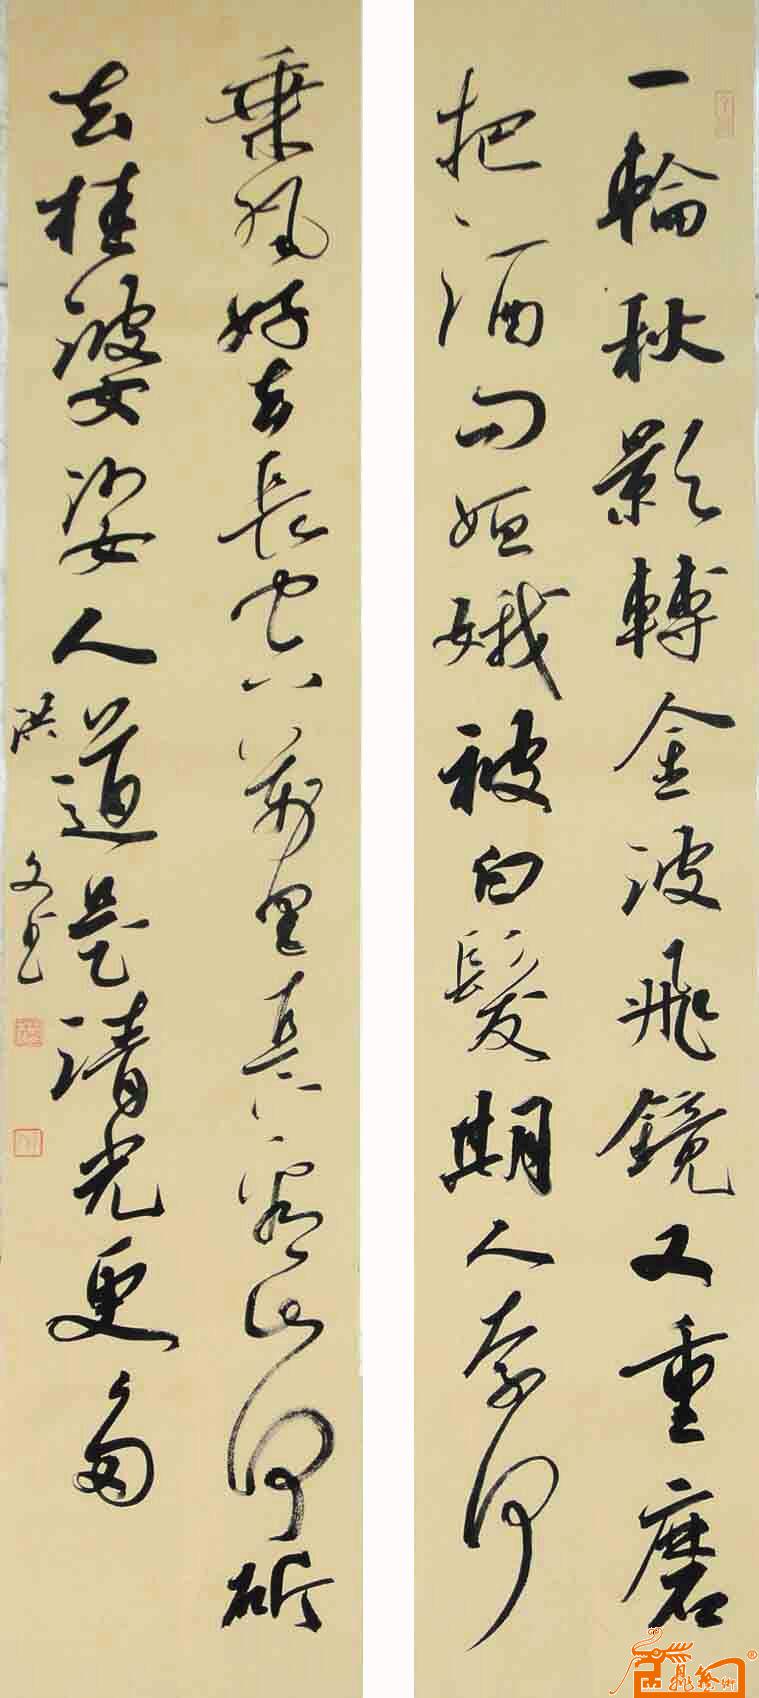 一輪秋影轉金波飛鏡又重磨
把酒问姮娥被白髮期人奈何
乘风好去長空萬里直下看山河斫
去桂婆娑人道是清光更多
洪文书